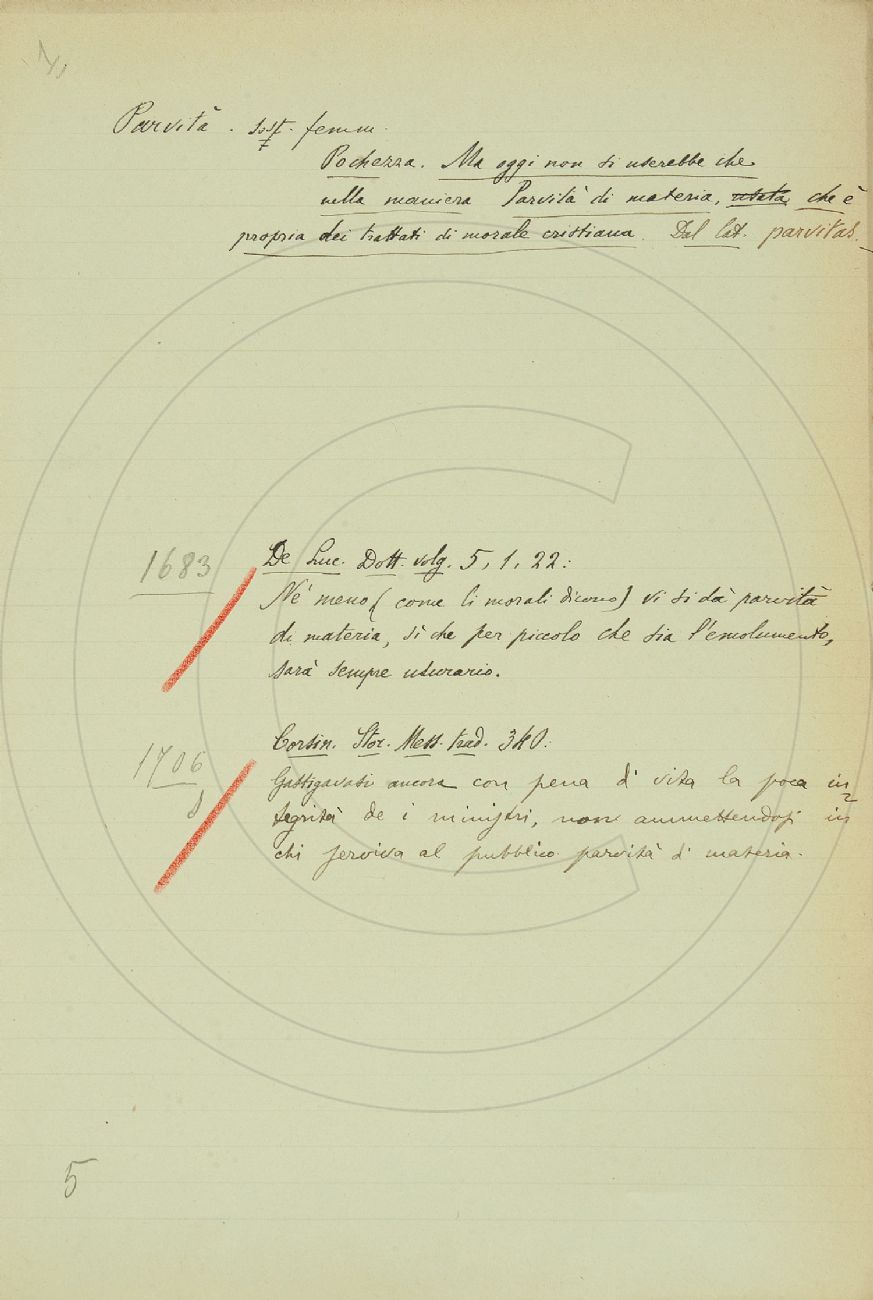 Parvità. sost. femm.
Pochezza. Ma oggi non si userebbe che
nella maniera Parvità di materia, usata che è
propria dei trattati di morale cristiana. Dal lat. parvitas.
1683
De Luc. Dott. volg. 5, 1, 22:
Nè meno (come li morali dicono) vi si dà parvità
di materia, sì che per piccolo che sia l'emolumento,
sarà sempre usurario.
1706
Corsin. Stor. Mess. trad. 340:
Gastigavasi ancora con pena di vita la poca in=
tegrità de i ministri, non ammettendosi in
chi serviva al pubblico parvità di materia.
5